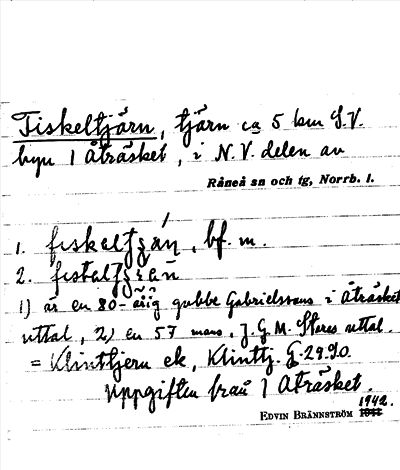 Fiskeltjärn, tjärn ca 5 km S.V.
byn 1 Åträsket, i N.V. delen av
Råneå sn och tg, Norrb. l.
1. , bf. m.
2.
1) är en 80-årig gubbe Gabrielssons i Åträsket
uttal, 2) en 57 mans, J.G.M. uttal.
= Klinttjern ek, Klinttj. G-29.90.
Uppgiften från 1 Åträsket.
1942.
EDVIN BRÄNNSTRÖM